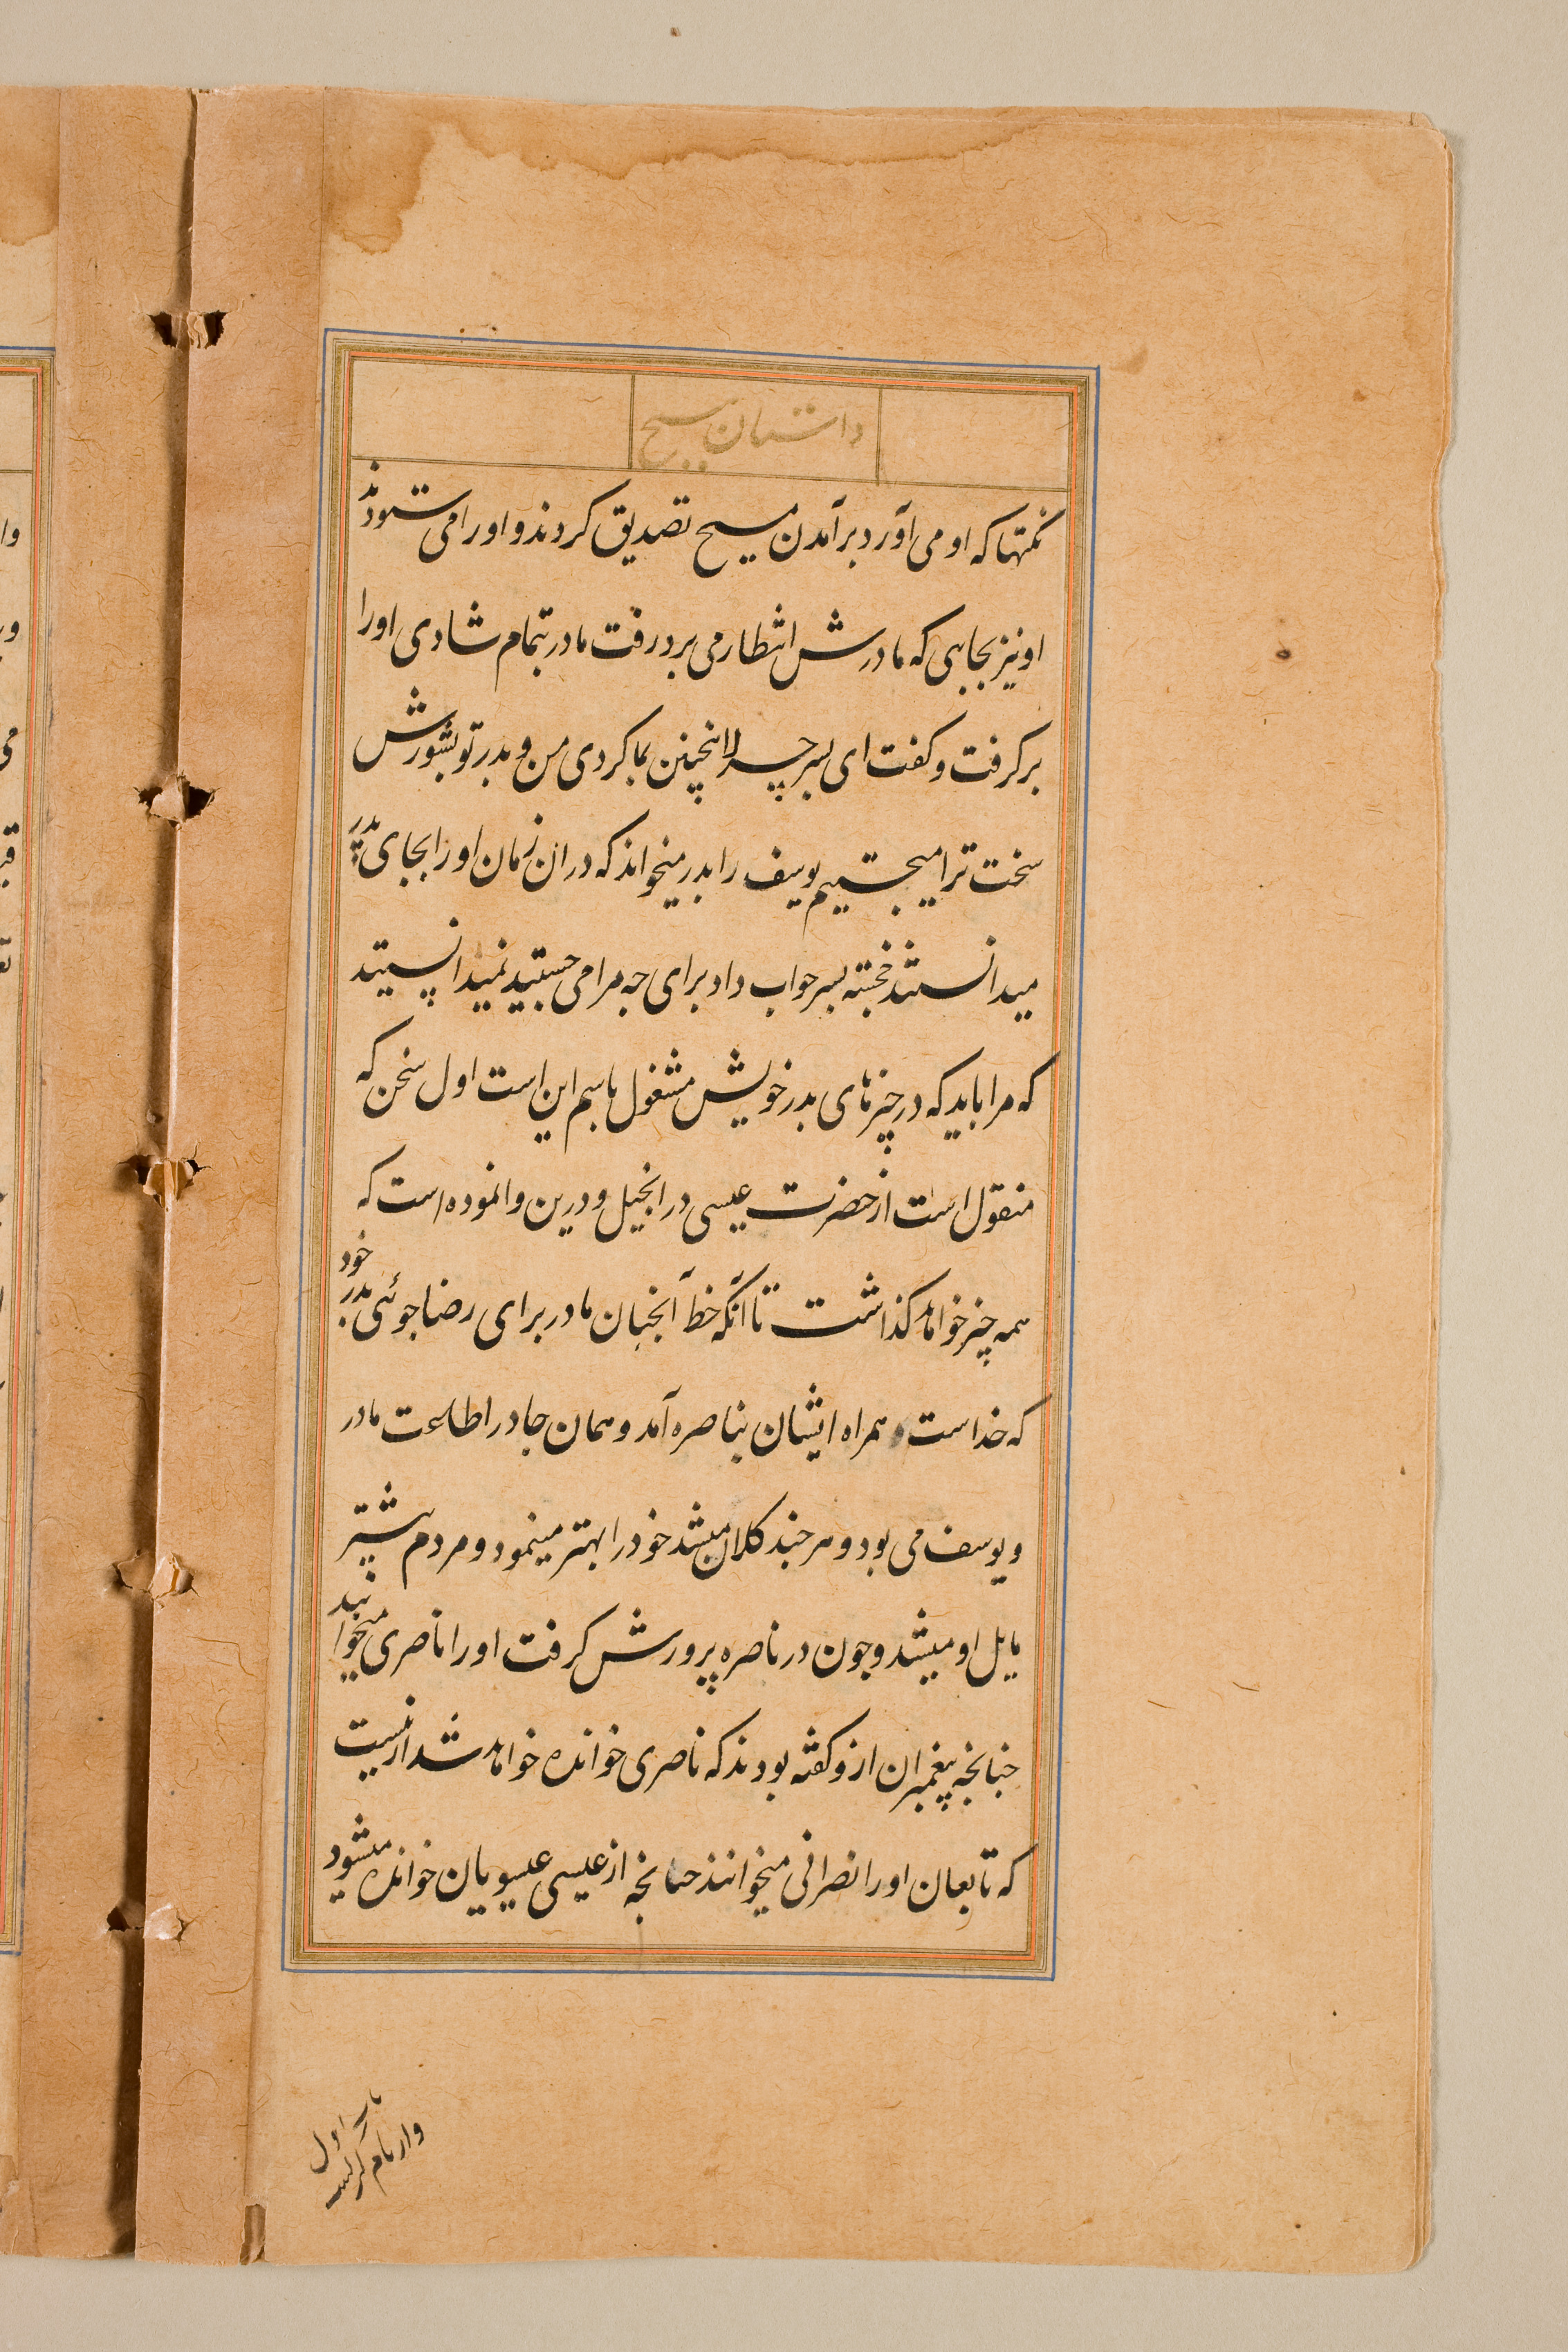 داستان مسیح
نکتها که او می آورد بر آمدن مسیح تصدیق کردند و او را می ستودند
او نیز بجایی که مادرش انتظار می برد رفت مادر بتمام شادی او را
بر کرفت و کفت ای پسر چرا اینچنین بما کردی من و پدر تو بشورش
سخت ترا میجستیم یوسف را پدر میخواند که دران زمان او را بجای پدر
میدانستند خجسته پسر جواب داد برای چه مرا می جستید نمیدانستید
که مرا باید که در چیزهای پدر خویش مشغول باشم این است اول سخن که
منقول است از حضرت عیسی در انجیل و درین وانموده است که
همه چیز خواهد کذاشت تا آنکه خط آنچنان مادر برای رضا جوئی پدر خود
که خداست و همراه ایشان بناصره آمد و همان جا در اطاعت مادر
و یوسف می بود و هر چند کلان میشد خود را بهتر مینمود و مردم بیشتر
مایل او میشد و چون در ناصره پرورش کرفت او را ناصری میخوانند
چنانچه پیغمبران ازو کفته بودند که ناصری خوانده خواهد شد ازینست
که تابعان او را نصرانی میخوانند چنانچه از عیسی عیسویان خوانده میشود